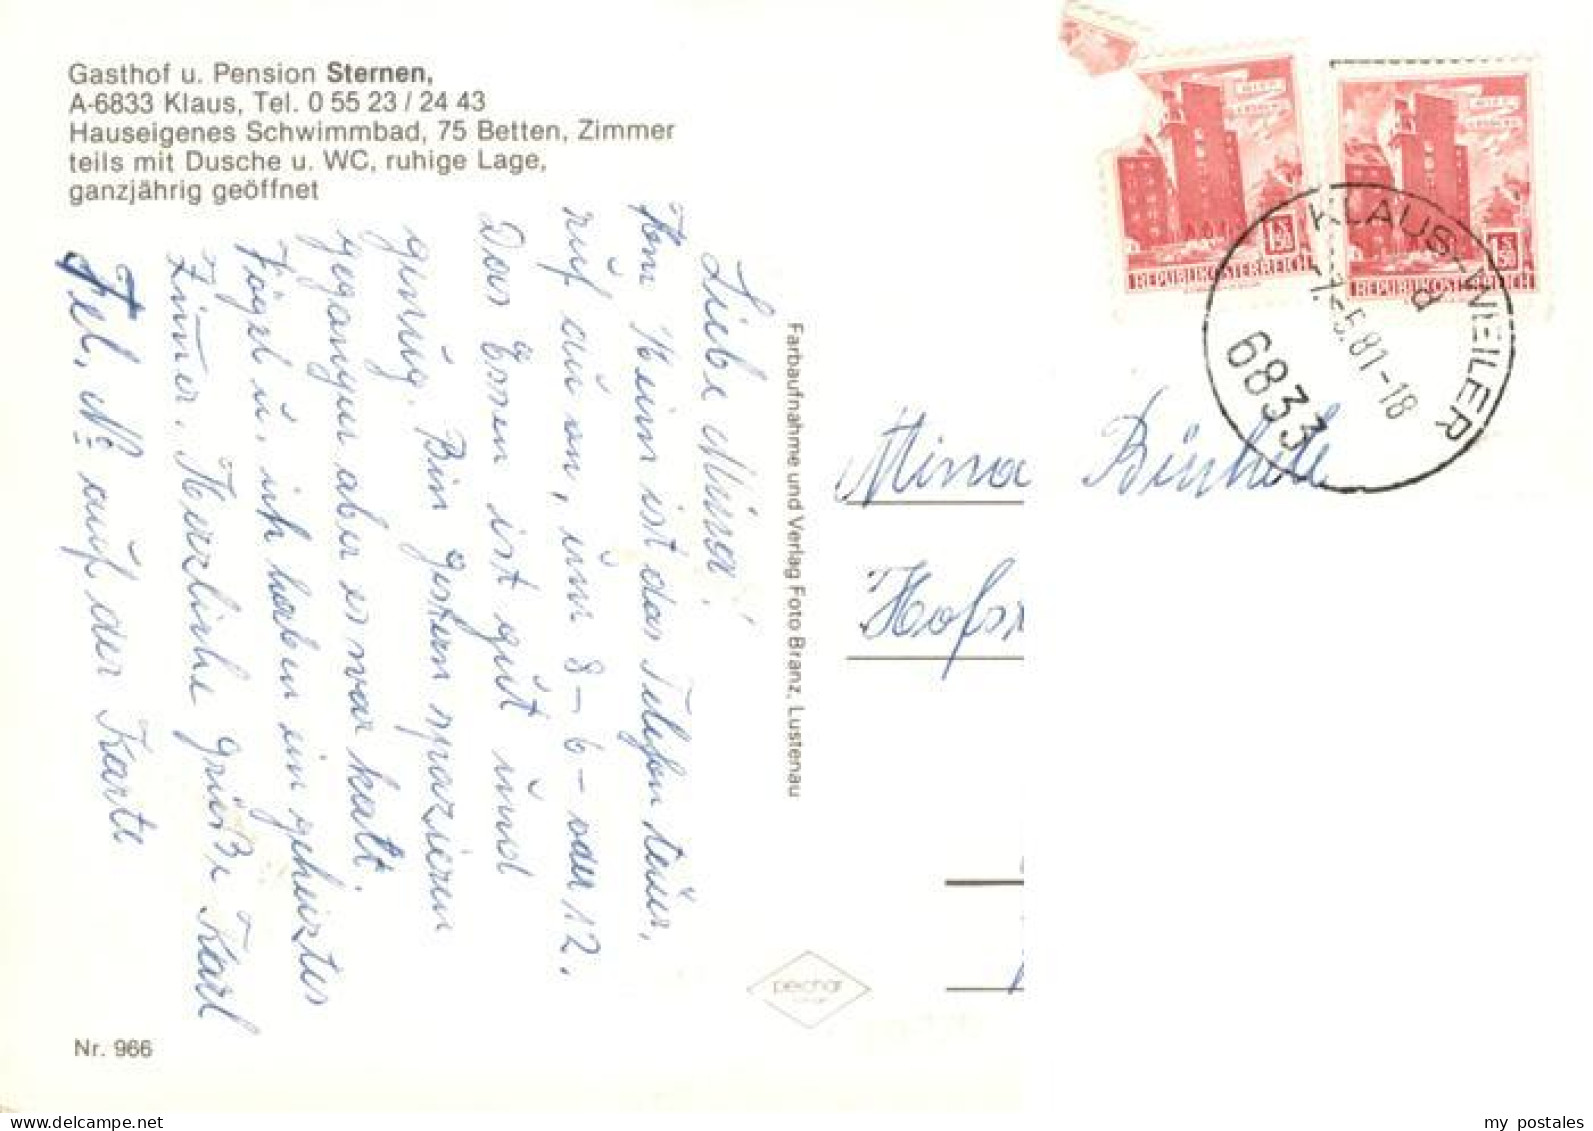 Gasthof u. Pension Sternen,
A-6833 Klaus, Tel. 0 55 23 / 24 43
Hauseigenes Schwimmbad, 75 Betten, Zimmer
teils mit Dusche u. WC, ruhige Lage,
ganzjährig geöffnet
Liebe Mina!
ist das Telefon teuer,
ruf an, um 8 – 6 – oder 12.
Das Essen ist gut und
genug. Bin gestern spazieren
gegangen aber es war kalt.
Vögel u. ich haben ein geheiztes
Zimmer. Herzliche Grüße Karl
Tel. Nº auf der Karte
Farbaufnahme und Verlag Foto Branz, Lustenau
Mina
REPUBLIK ÖSTERREICH
1 S 50
REPUBLIK ÖSTERREICH
1 S 50
KLAUS-WEILER
5.81-18
6833
Nr. 966
my postales